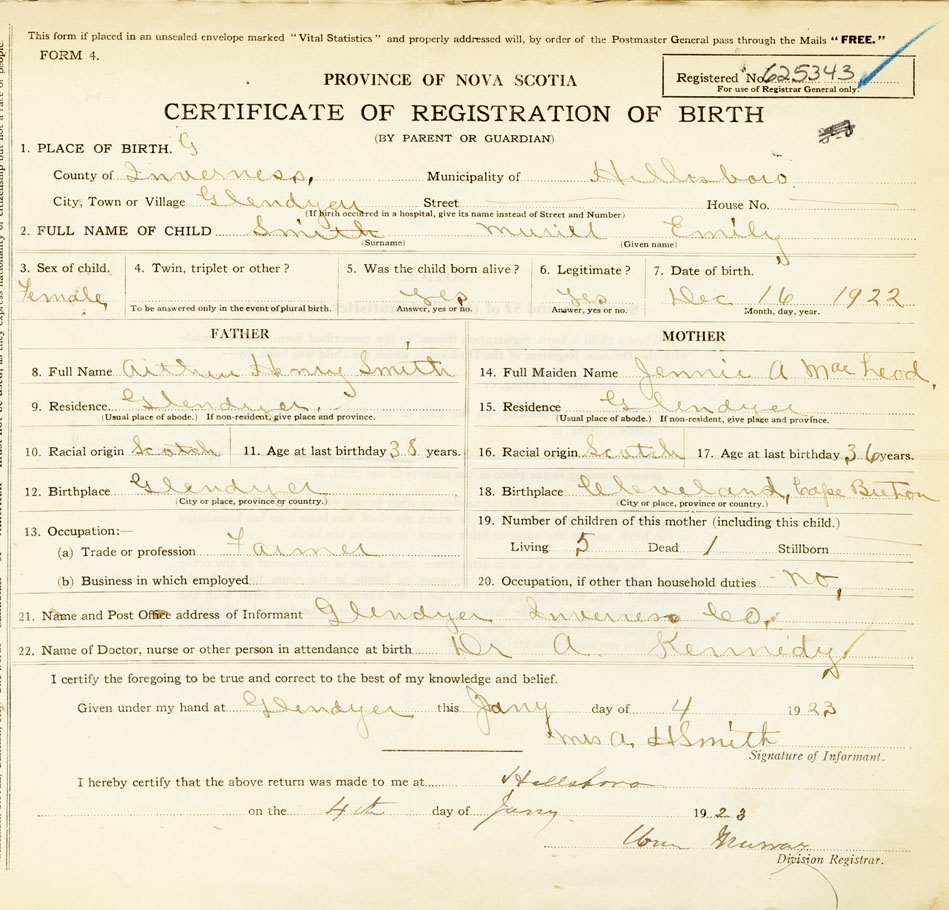 This form if placed in an unsealed envelope marked "Vital Statistics" and properly addressed will, by order of the Postmaster General pass through the Mails "FREE."
FORM 4.
PROVINCE OF NOVA SCOTIA
Registered No. 625343
For use of Registrar General only.
CERTIFICATE OF REGISTRATION OF BIRTH
(BY PARENT OR GUARDIAN)
1. PLACE OF BIRTH. G
County of Inverness, Municipality of Hillsboro
City, Town or Village Glendyer Street House No.
(If birth occurred in a hospital, give its name instead of Street and Number)
2. FULL NAME OF CHILD Smith Muriel Emily
(Surname) (Given name)
3. Sex of child. 4. Twin, triplet or other? 5. Was the child born alive? 6. Legitimate? 7. Date of birth.
Female yes Yes Dec 16 1922
To be answered only in the event of plural birth. Answer, yes or no. Answer, yes or no. Month, day, year.
FATHER MOTHER
8. Full Name Henry Smith 14. Full Maiden Name Jennie A MacLeod,
9. Residence Glendyer, 15. Residence Glendyer
(Usual place of abode.) If non-resident, give place and province. (Usual place of abode.) If non-resident, give place and province.
10. Racial origin Scotch 11. Age at last birthday 38 years. 16. Racial origin Scotch 17. Age at last birthday 36 years.
12. Birthplace Glendyer 18. Birthplace Cleveland, Cape Breton
(City or place, province or country.) (City or place, province or country.)
13. Occupation:— 19. Number of children of this mother (including this child.)
(a) Trade or profession Farmer Living 5 Dead 1 Stillborn
(b) Business in which employed 20. Occupation, if other than household duties No,
21. Name and Post Office address of Informant Glendyer Inverness Co,
22. Name of Doctor, nurse or other person in attendance at birth Dr A. Kennedy
I certify the foregoing to be true and correct to the best of my knowledge and belief.
Given under my hand at Glendyer this Jany day of 4 1923
Mrs A H Smith
Signature of Informant.
I hereby certify that the above return was made to me at Hillsboro
on the 4th day of Jany 1923
Murray
Division Registrar.